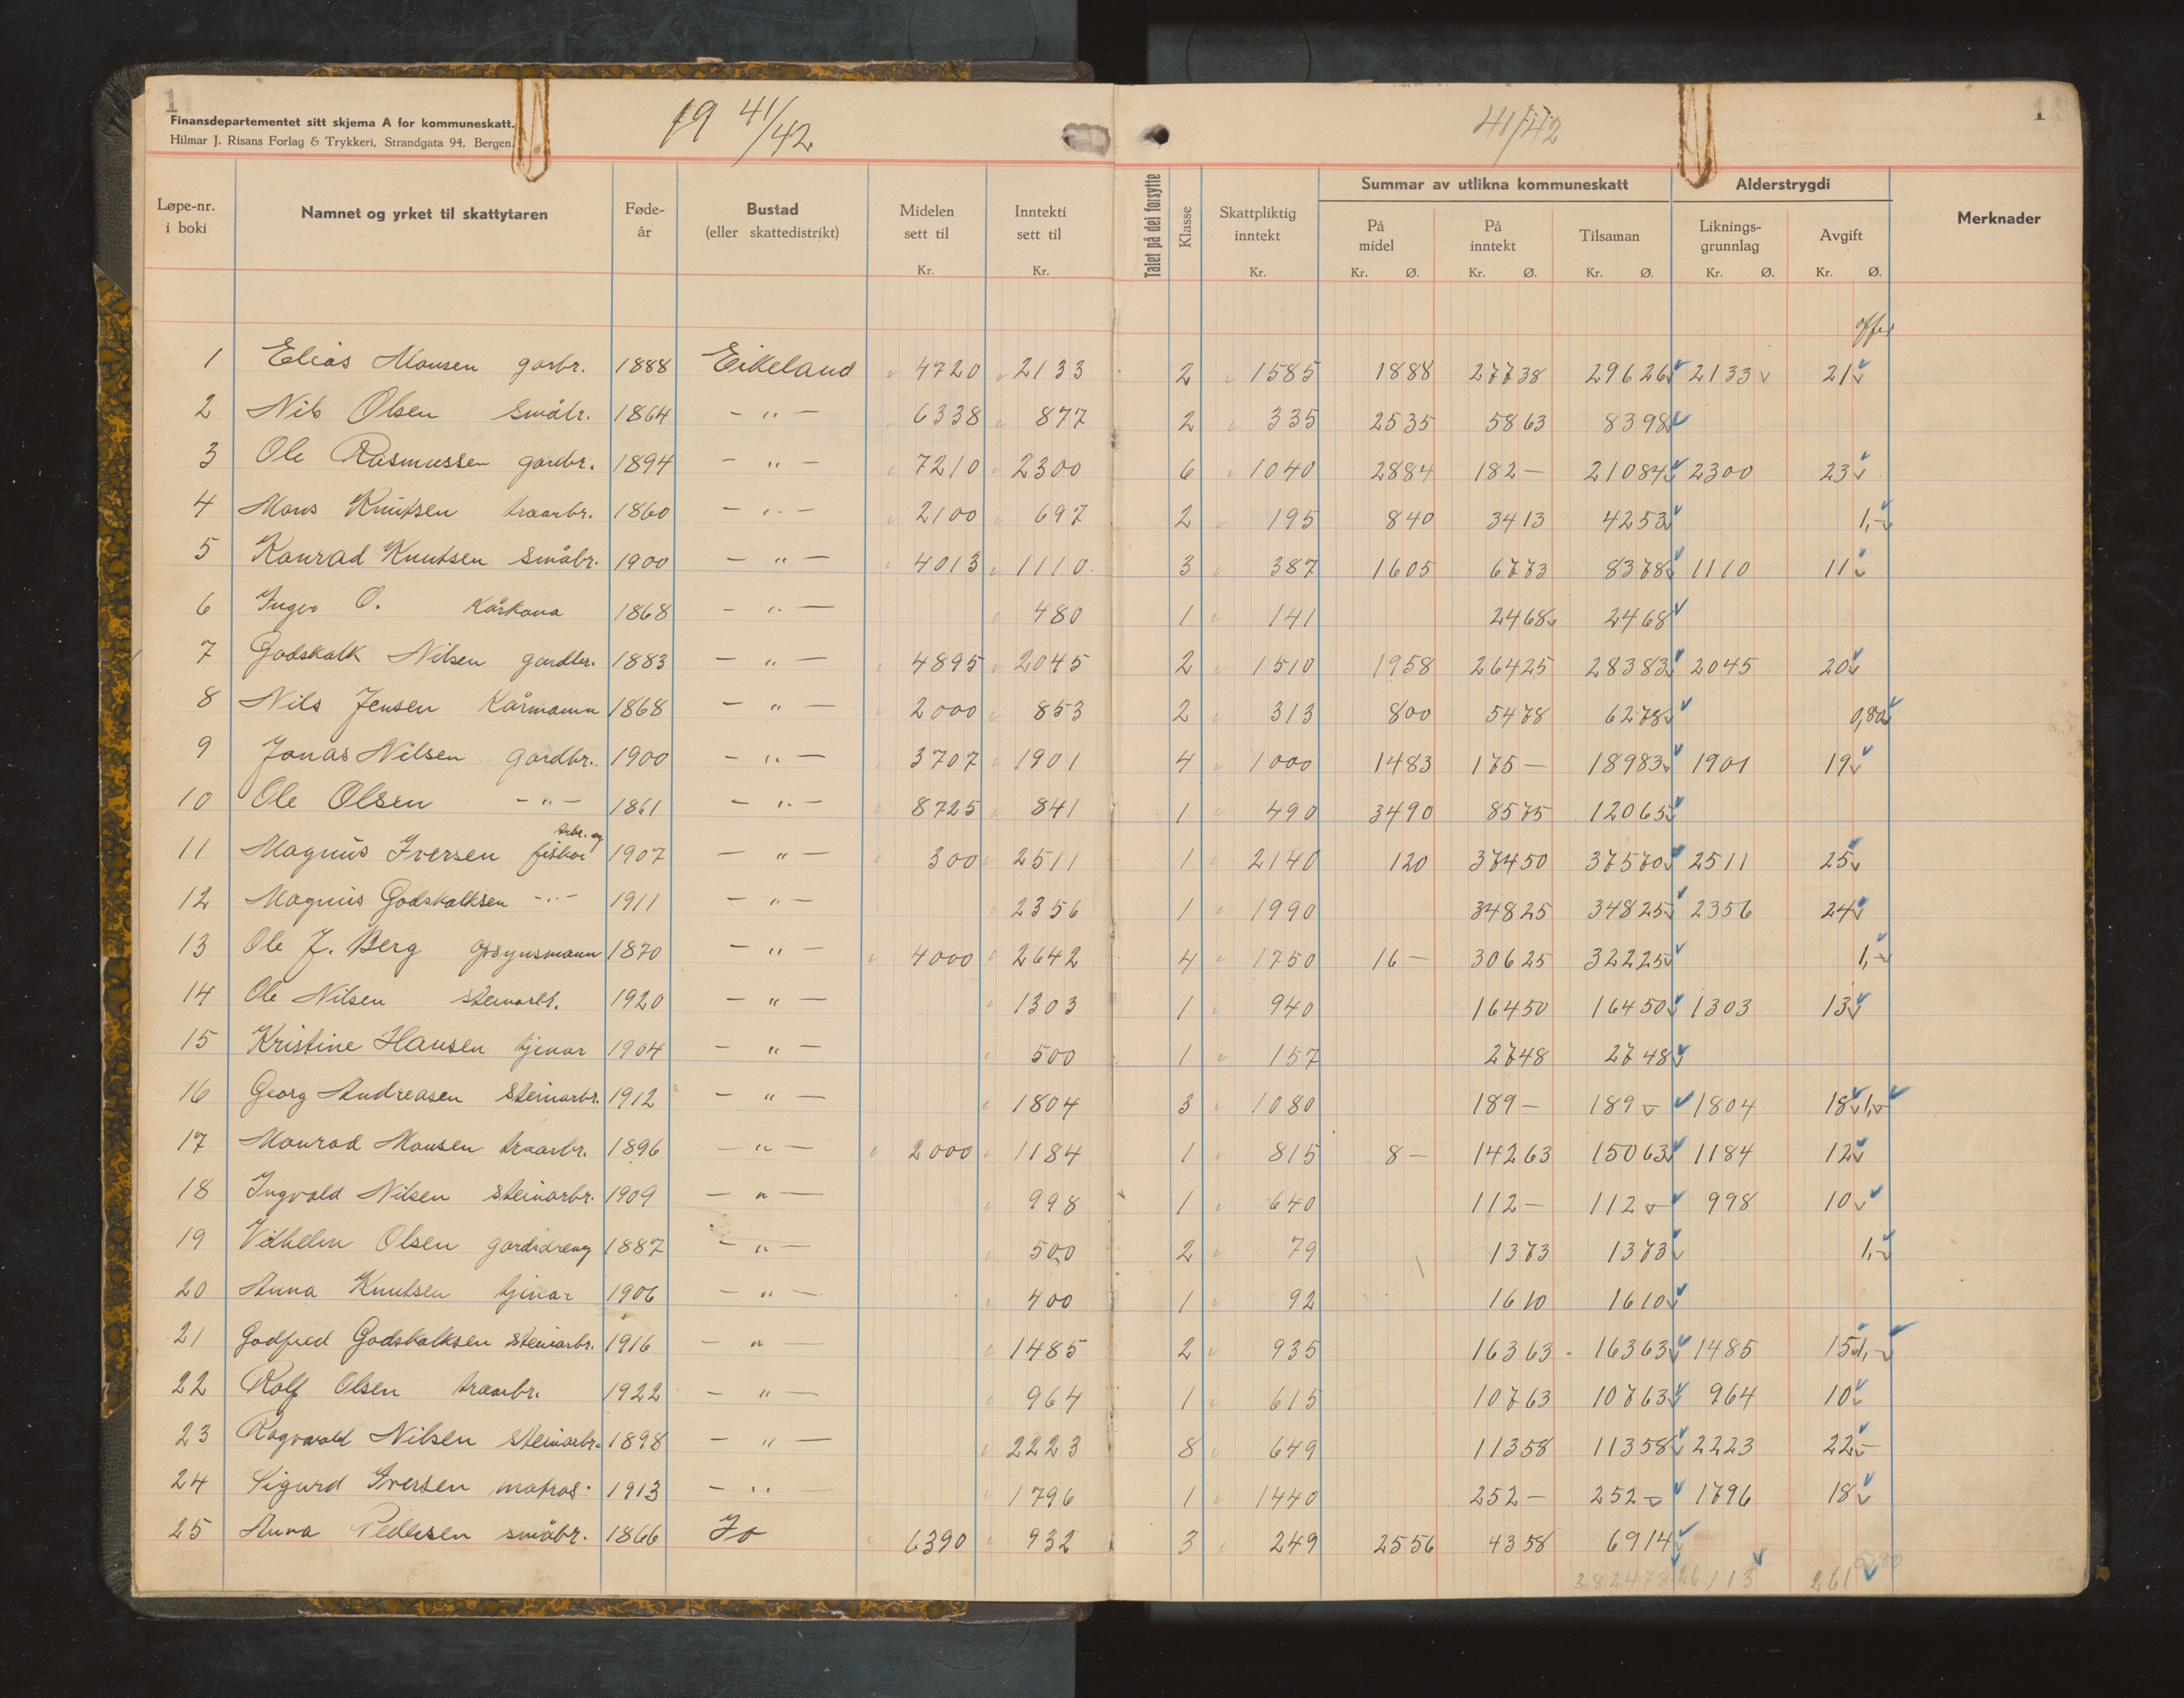 1
Finansdepartementet sitt skjema A for kommuneskatt.
Hilmar J. Risans Forlag & Trykkeri, Strandgata 94, Bergen.
19 41/42
41/42
1
Løpe-nr. i boki | Namnet og yrket til skattytaren | Føde-år | Bustad (eller skattedistrikt) | Midelen sett til Kr. | Inntekti sett til Kr. | Talet på dei forsytte | Klasse | Skattpliktig inntekt Kr. | Summar av utlikna kommuneskatt: På midel Kr. Ø. | På inntekt Kr. Ø. | Tilsaman Kr. Ø. | Alderstrygdi: Liknings-grunnlag Kr. Ø. | Avgift Kr. Ø. | Merknader
1 Elias Monsen garbr. 1888 Eikeland 4720 2133 2 1585 1888 27738 29626 2133 21
2 Nils Olsen småbr. 1864 - " - 6338 877 2 335 2535 5863 8398
3 Ole Rasmussen gardbr. 1894 - " - 7210 2300 6 1040 2884 182- 21084 2300 23
4 Mons Knutsen traarbr. 1860 - " - 2100 697 2 195 840 3413 4253 1,-
5 Konrad Knutsen småbr. 1900 - " - 4013 1110 3 387 1605 6773 8378 1110 11
6 O. Kårkona 1868 - " - 480 1 141 2468 2468
7 Godskalk Nilsen gardbr. 1883 - " - 4895 2045 2 1510 1958 26425 28383 2045 20
8 Nils Jensen Kårmann 1868 - " - 2000 853 2 313 800 5478 6278 0,80
9 Jonas Nilsen gardbr. 1900 - " - 3707 1901 4 1000 1483 175- 18983 1901 19
10 Ole Olsen - " - 1861 - " - 8725 841 1 490 3490 8575 12065
11 Magnus Iversen arb. og fiskar 1907 - " - 300 2511 1 2140 120 37450 37570 2511 25
12 Magnus Godskalksen - " - 1911 - " - 2356 1 1990 34825 34825 2356 24
13 Ole J. Berg opsynsmann 1870 - " 4000 2642 4 1750 16- 30625 32225 1,-
14 Ole Nilsen steinarb. 1920 - " - 1303 1 940 16450 16450 1303 13
15 Kristine Hansen tjenar 1904 - " - 500 1 157 2748 2748
16 Georg Andreasen steinarbr. 1912 - " - 1804 3 1080 189- 189- 1804 18 1,-
17 Monrad Monsen traarbr. 1896 - " - 2000 1184 1 815 8- 14263 15063 1184 12
18 Ingvald Nilsen steinarbr. 1909 - " - 998 1 640 112- 112- 998 10
19 Vilhelm Olsen gardsdreng 1887 - " - 500 2 79 1373 1373 1,-
20 Anna Knutsen tjenar 1906 - " - 400 1 92 1610 1610
21 Godfred Godskalksen steinarbr. 1916 - " - 1485 2 935 16363 16363 1485 15 1,-
22 Rolf Olsen traarbr. 1922 - " - 964 1 615 10763 10763 964 10
23 Ragnvald Nilsen steinarbr. 1898 - " - 2223 8 649 11358 11358 2223 22-
24 Sigurd Iversen matros 1913 - " 1796 1 1440 252- 252- 1796 18
25 Anna Pedersen småbr. 1866 Jo 6390 932 3 249 2556 4358 6914
382478 26113 261